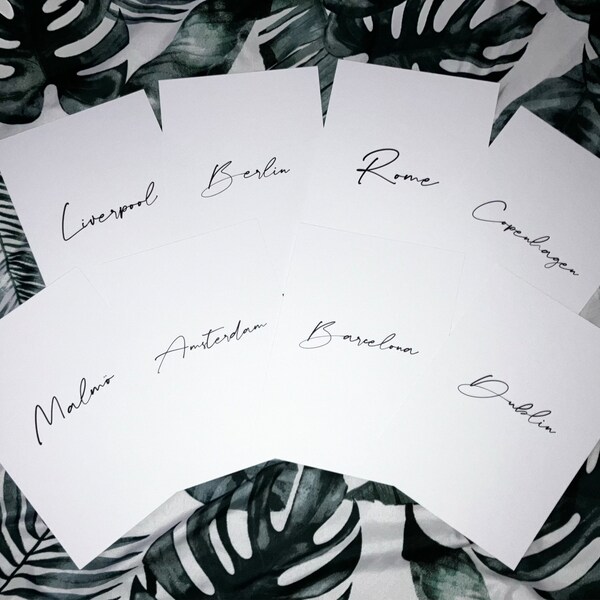 Liverpool
Berlin
Rome
Copenhagen
Malmö
Amsterdam
Barcelona
Dublin